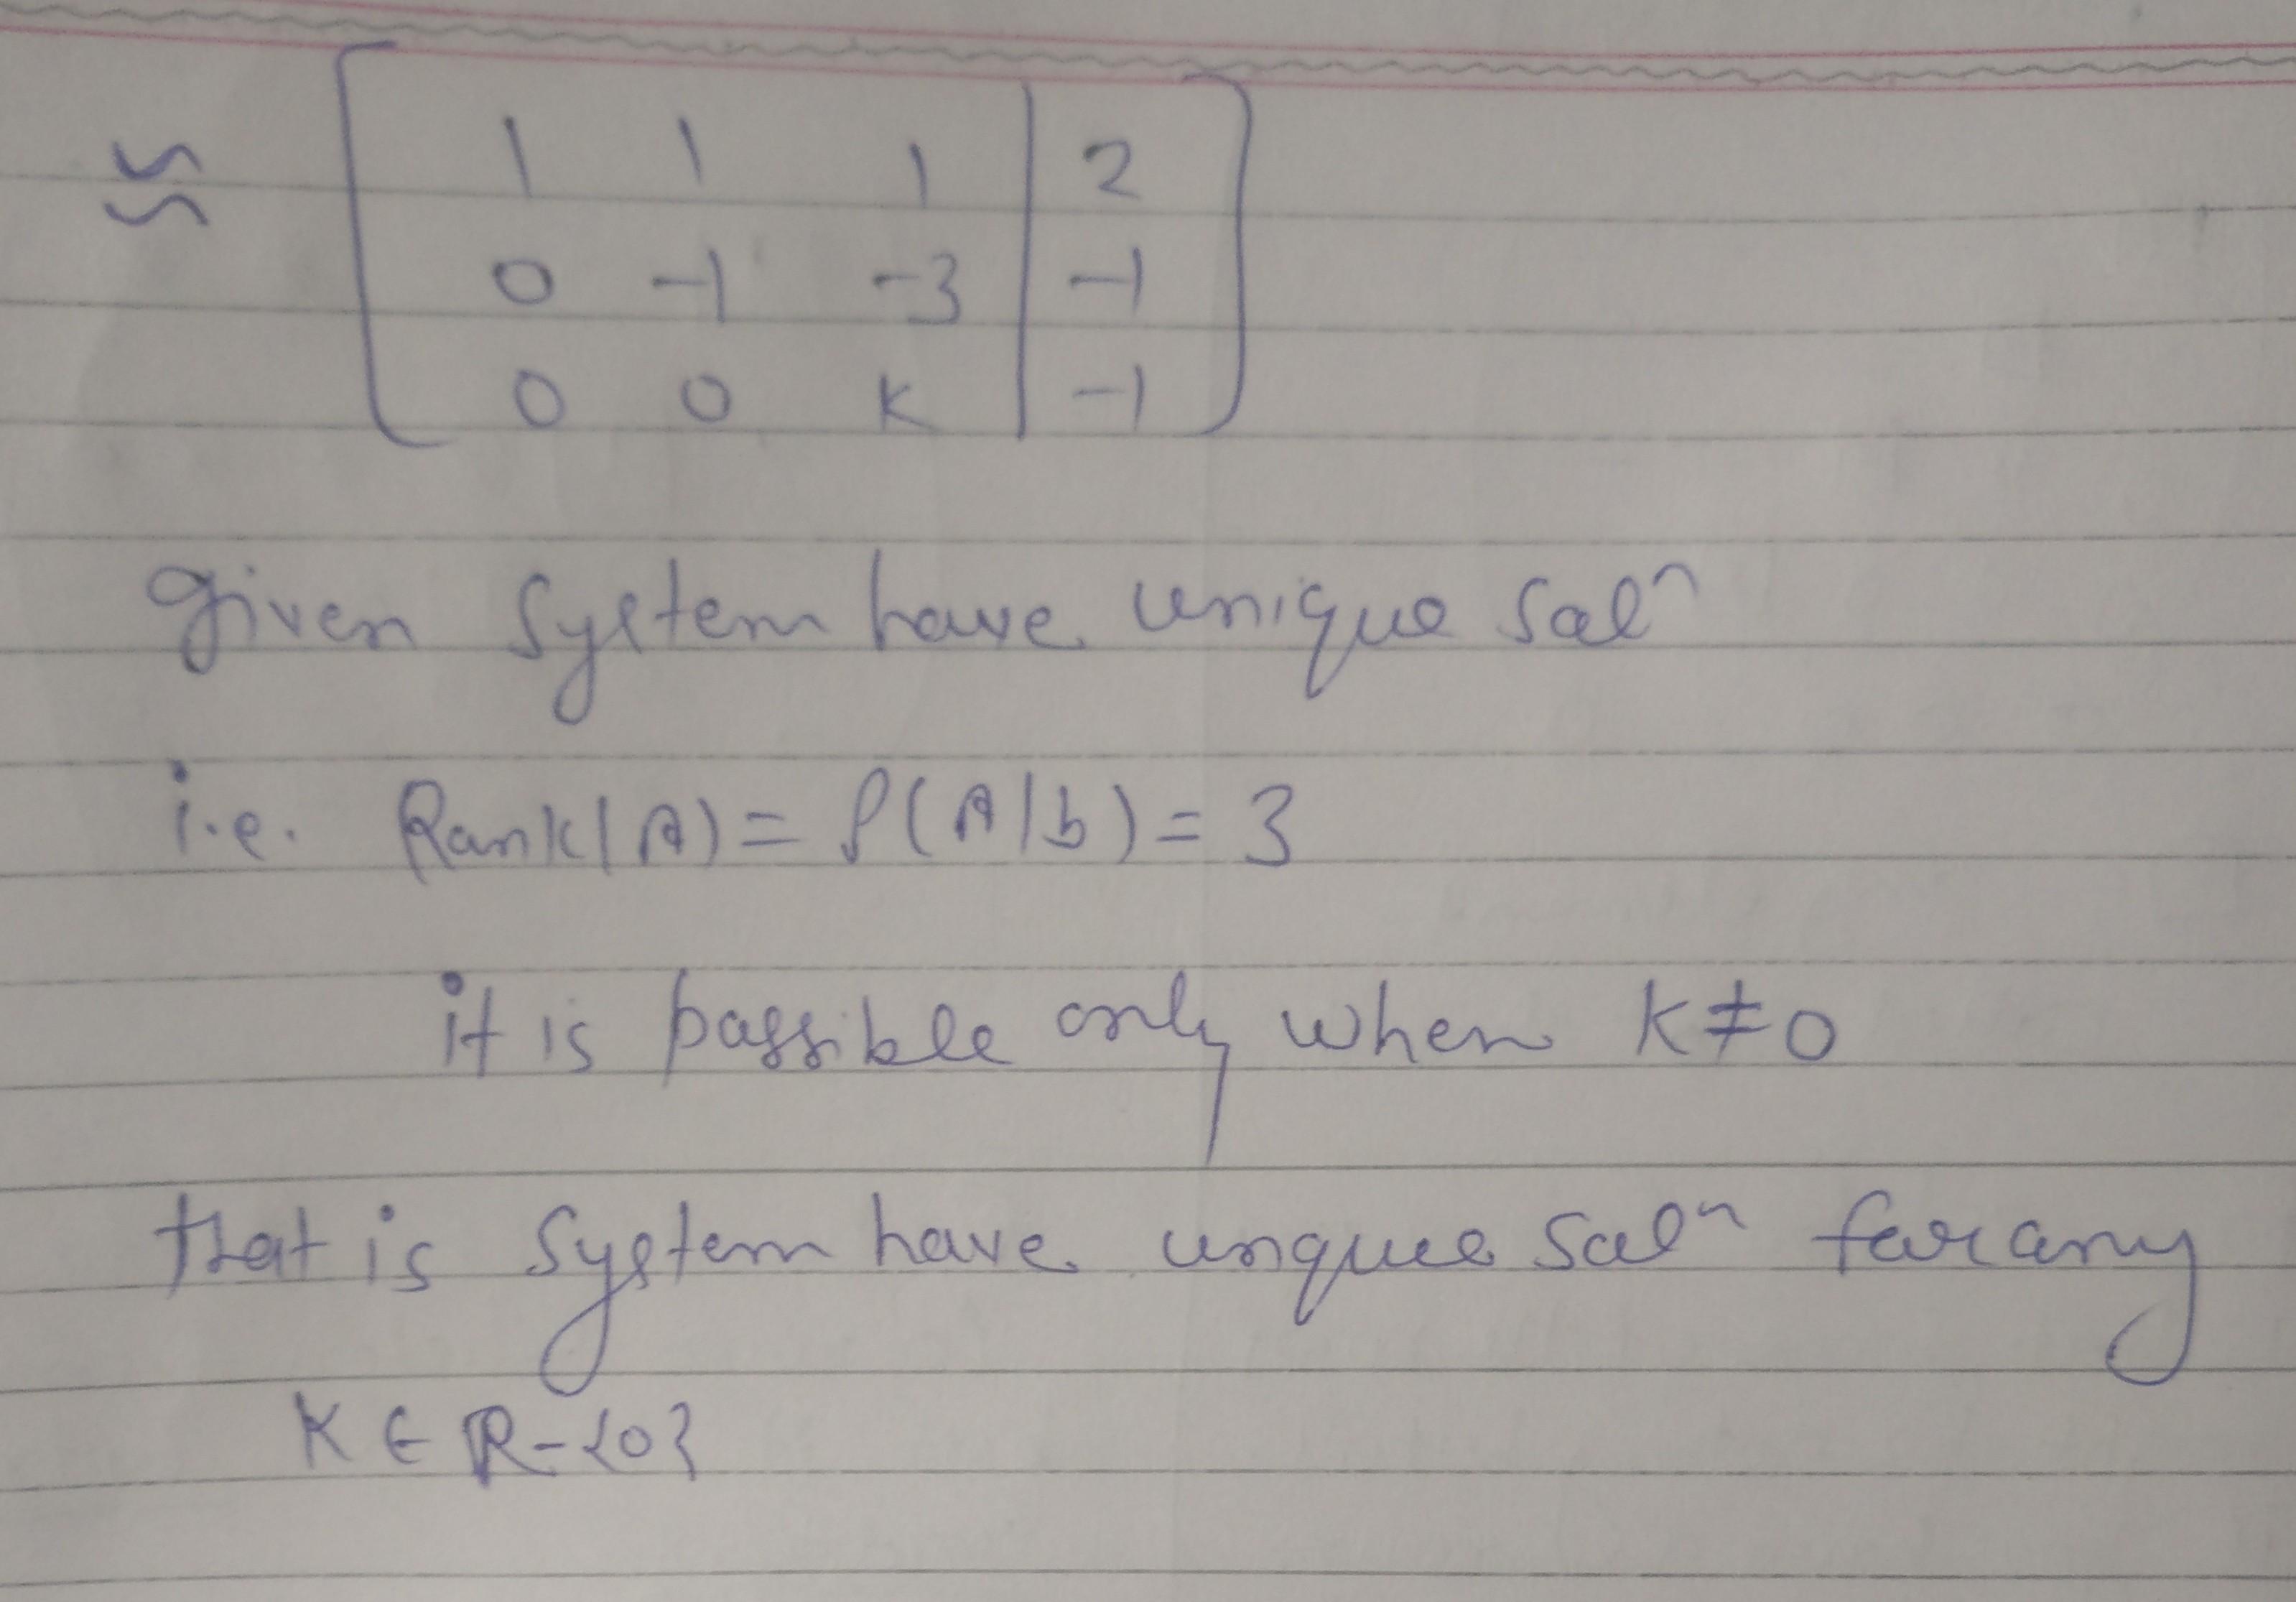 ≈ [ 1 1 1 | 2 ]
[ 0 -1 -3 | -1 ]
[ 0 0 K | -1 ]
given System have unique solⁿ
i.e. Rank(A) = ρ(A|b) = 3
it is possible only when K≠0
that is System have unque solⁿ for any
K ∈ ℝ-{0}